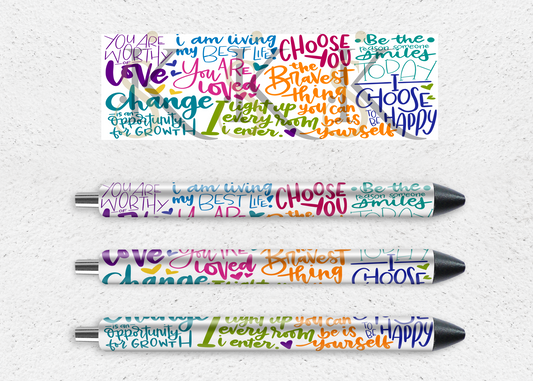 YOU ARE WORTHY OF Love
i am living my BEST LIFE!
CHOOSE YOU
Be the reason someone smiles TODAY
You ARE loved
the Bravest thing you can be is yourself
I CHOOSE TO BE HAPPY
Change is an opportunity for GROWTH
I light up every room i enter.
YOU ARE WORTHY
i am living my BEST LIFE!
CHOOSE YOU
Be the reason someone smiles
Love
You ARE loved
Bravest thing
I CHOOSE
Change
is an opportunity for GROWTH
I light up every room i enter.
you can be is yourself
TO BE HAPPY